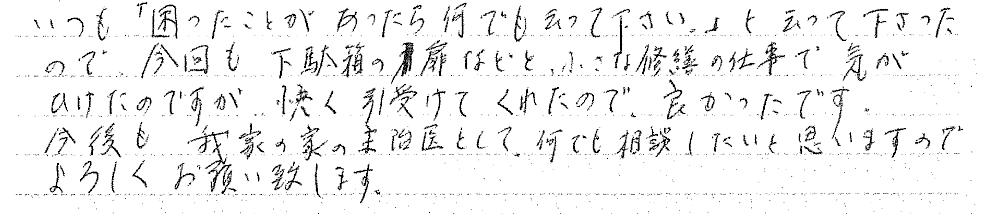 いつも「困ったことがあったら何でも云って下さい。」と云って下さった
ので、今回も下駄箱の扉などと、小さな修繕の仕事で気が
ひけたのですが、快く引受けてくれたので、良かったです。
今後も我家の家の主治医として、何でも相談したいと思いますので
よろしくお願い致します。